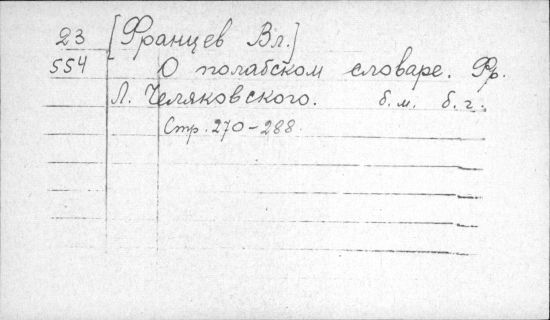 23 [Францев Вл.]
554 О полабском словаре. Фр.
Л. Челяковского. б.м. б.г.
Стр. 270-288.